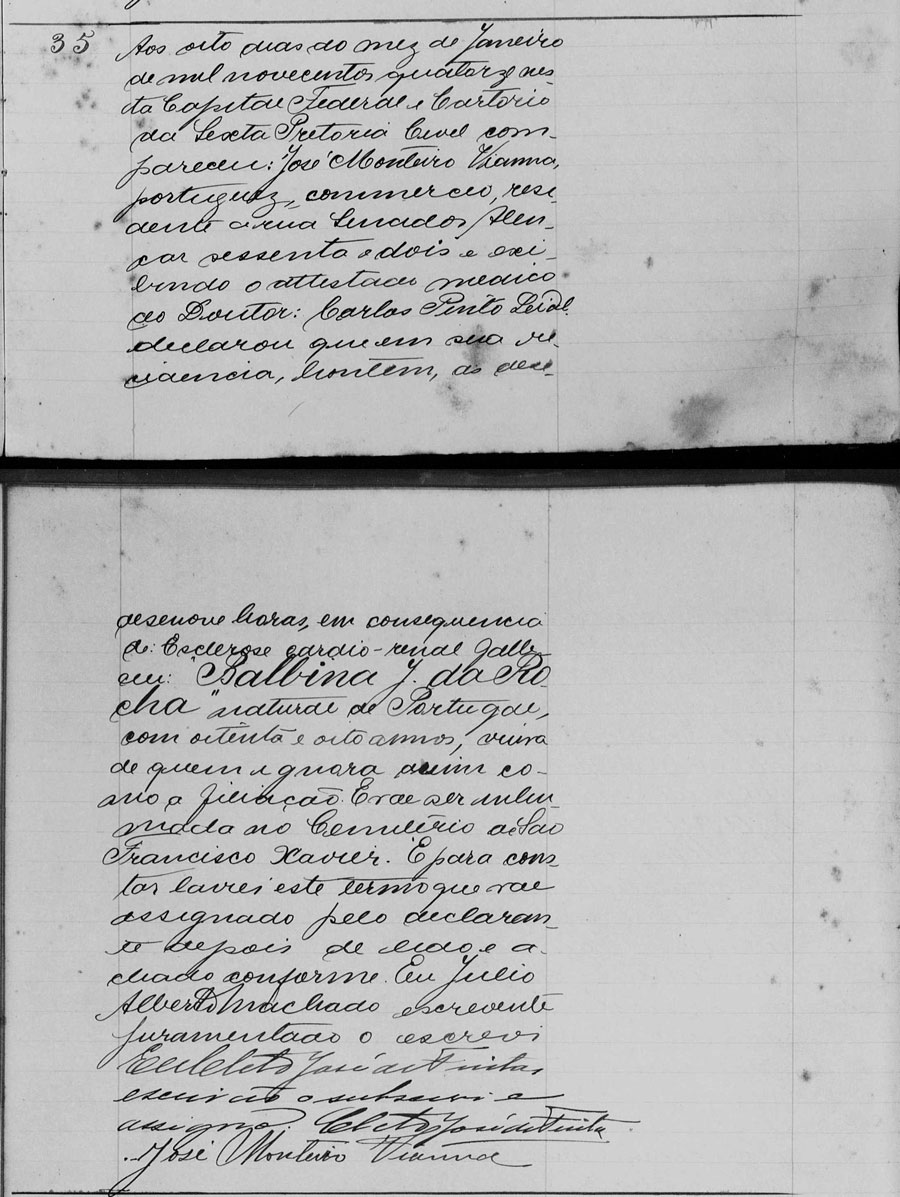 35
Aos oito dias do mez de Janeiro
de mil novecentos quatorze nes-
ta Capital Federal e Cartorio
da Sexta Pretoria Civel com-
pareceu: José Monteiro Vianna,
portuguez, commercio, resi-
dente á rua Senador Alen-
car sessenta e dois e exi-
bindo o attestado medico
do Doutor: Carlos Pinto
declarou que em sua re-
cidencia, hontem, as dese-
desenove horas, em consequencia
de: Esclerose cardio-renal falle-
ceu: "Balbina J. da Ro-
cha" natural de Portugal,
com oitenta e oito annos, viuva
de quem ignora assim co-
mo a filiação. E vae ser inhu-
mada no Cemiterio de São
Francisco Xavier. E para cons-
tar lavrei este termo que vae
assignado pelo declaran-
te depois de lido e a-
chado conforme. Eu Julio
Alberto Machado escrevente
juramentado o escrevi
Eu Cleto José de Freitas
escrivão o subscrevi e
assigno. Cleto José de Freitas.
José Monteiro Vianna